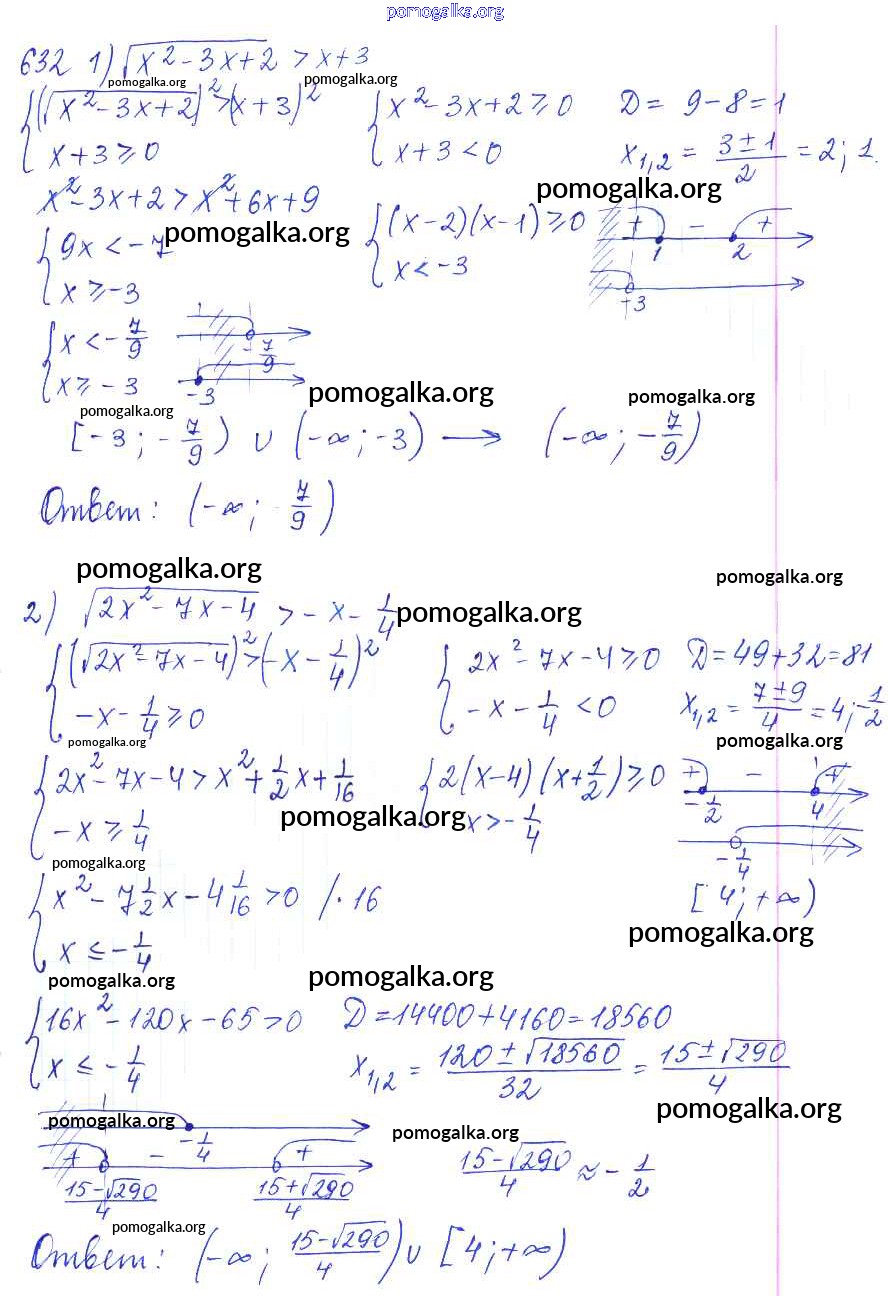 pomogalka.org
632 1) √(x² - 3x + 2) > x + 3
pomogalka.org pomogalka.org
{ (√(x² - 3x + 2))² > (x + 3)² { x² - 3x + 2 ≥ 0 D = 9 - 8 = 1
x + 3 ≥ 0 x + 3 < 0 x₁,₂ = (3 ± 1)/2 = 2; 1.
x² - 3x + 2 > x² + 6x + 9 pomogalka.org
{ 9x < -7 pomogalka.org { (x - 2)(x - 1) ≥ 0 + - +
x ≥ -3 x < -3 1 2
-3
{ x < -7/9 -7/9
x ≥ -3 -3 pomogalka.org pomogalka.org
pomogalka.org
[-3; -7/9) ∪ (-∞; -3) → (-∞; -7/9)
Ответ: (-∞; -7/9)
pomogalka.org pomogalka.org
2) √(2x² - 7x - 4) > -x - 1/4 pomogalka.org
{ (√(2x² - 7x - 4))² > (-x - 1/4)² { 2x² - 7x - 4 ≥ 0 D = 49 + 32 = 81
-x - 1/4 ≥ 0 -x - 1/4 < 0 x₁,₂ = (7 ± 9)/4 = 4; -1/2
pomogalka.org pomogalka.org
{ 2x² - 7x - 4 > x² + 1/2 x + 1/16 { 2(x - 4)(x + 1/2) ≥ 0 + - +
-1/2 4
-x ≥ 1/4 pomogalka.org x > -1/4
-1/4
pomogalka.org
{ x² - 7 1/2 x - 4 1/16 > 0 /· 16 [4; +∞)
x ≤ -1/4 pomogalka.org
pomogalka.org pomogalka.org
{ 16x² - 120x - 65 > 0 D = 14400 + 4160 = 18560
x ≤ -1/4 x₁,₂ = (120 ± √18560)/32 = (15 ± √290)/4
pomogalka.org pomogalka.org
-1/4 pomogalka.org
+ - +
(15 - √290)/4 (15 + √290)/4 (15 - √290)/4 ≈ -1/2
pomogalka.org
Ответ: (-∞; (15 - √290)/4) ∪ [4; +∞)